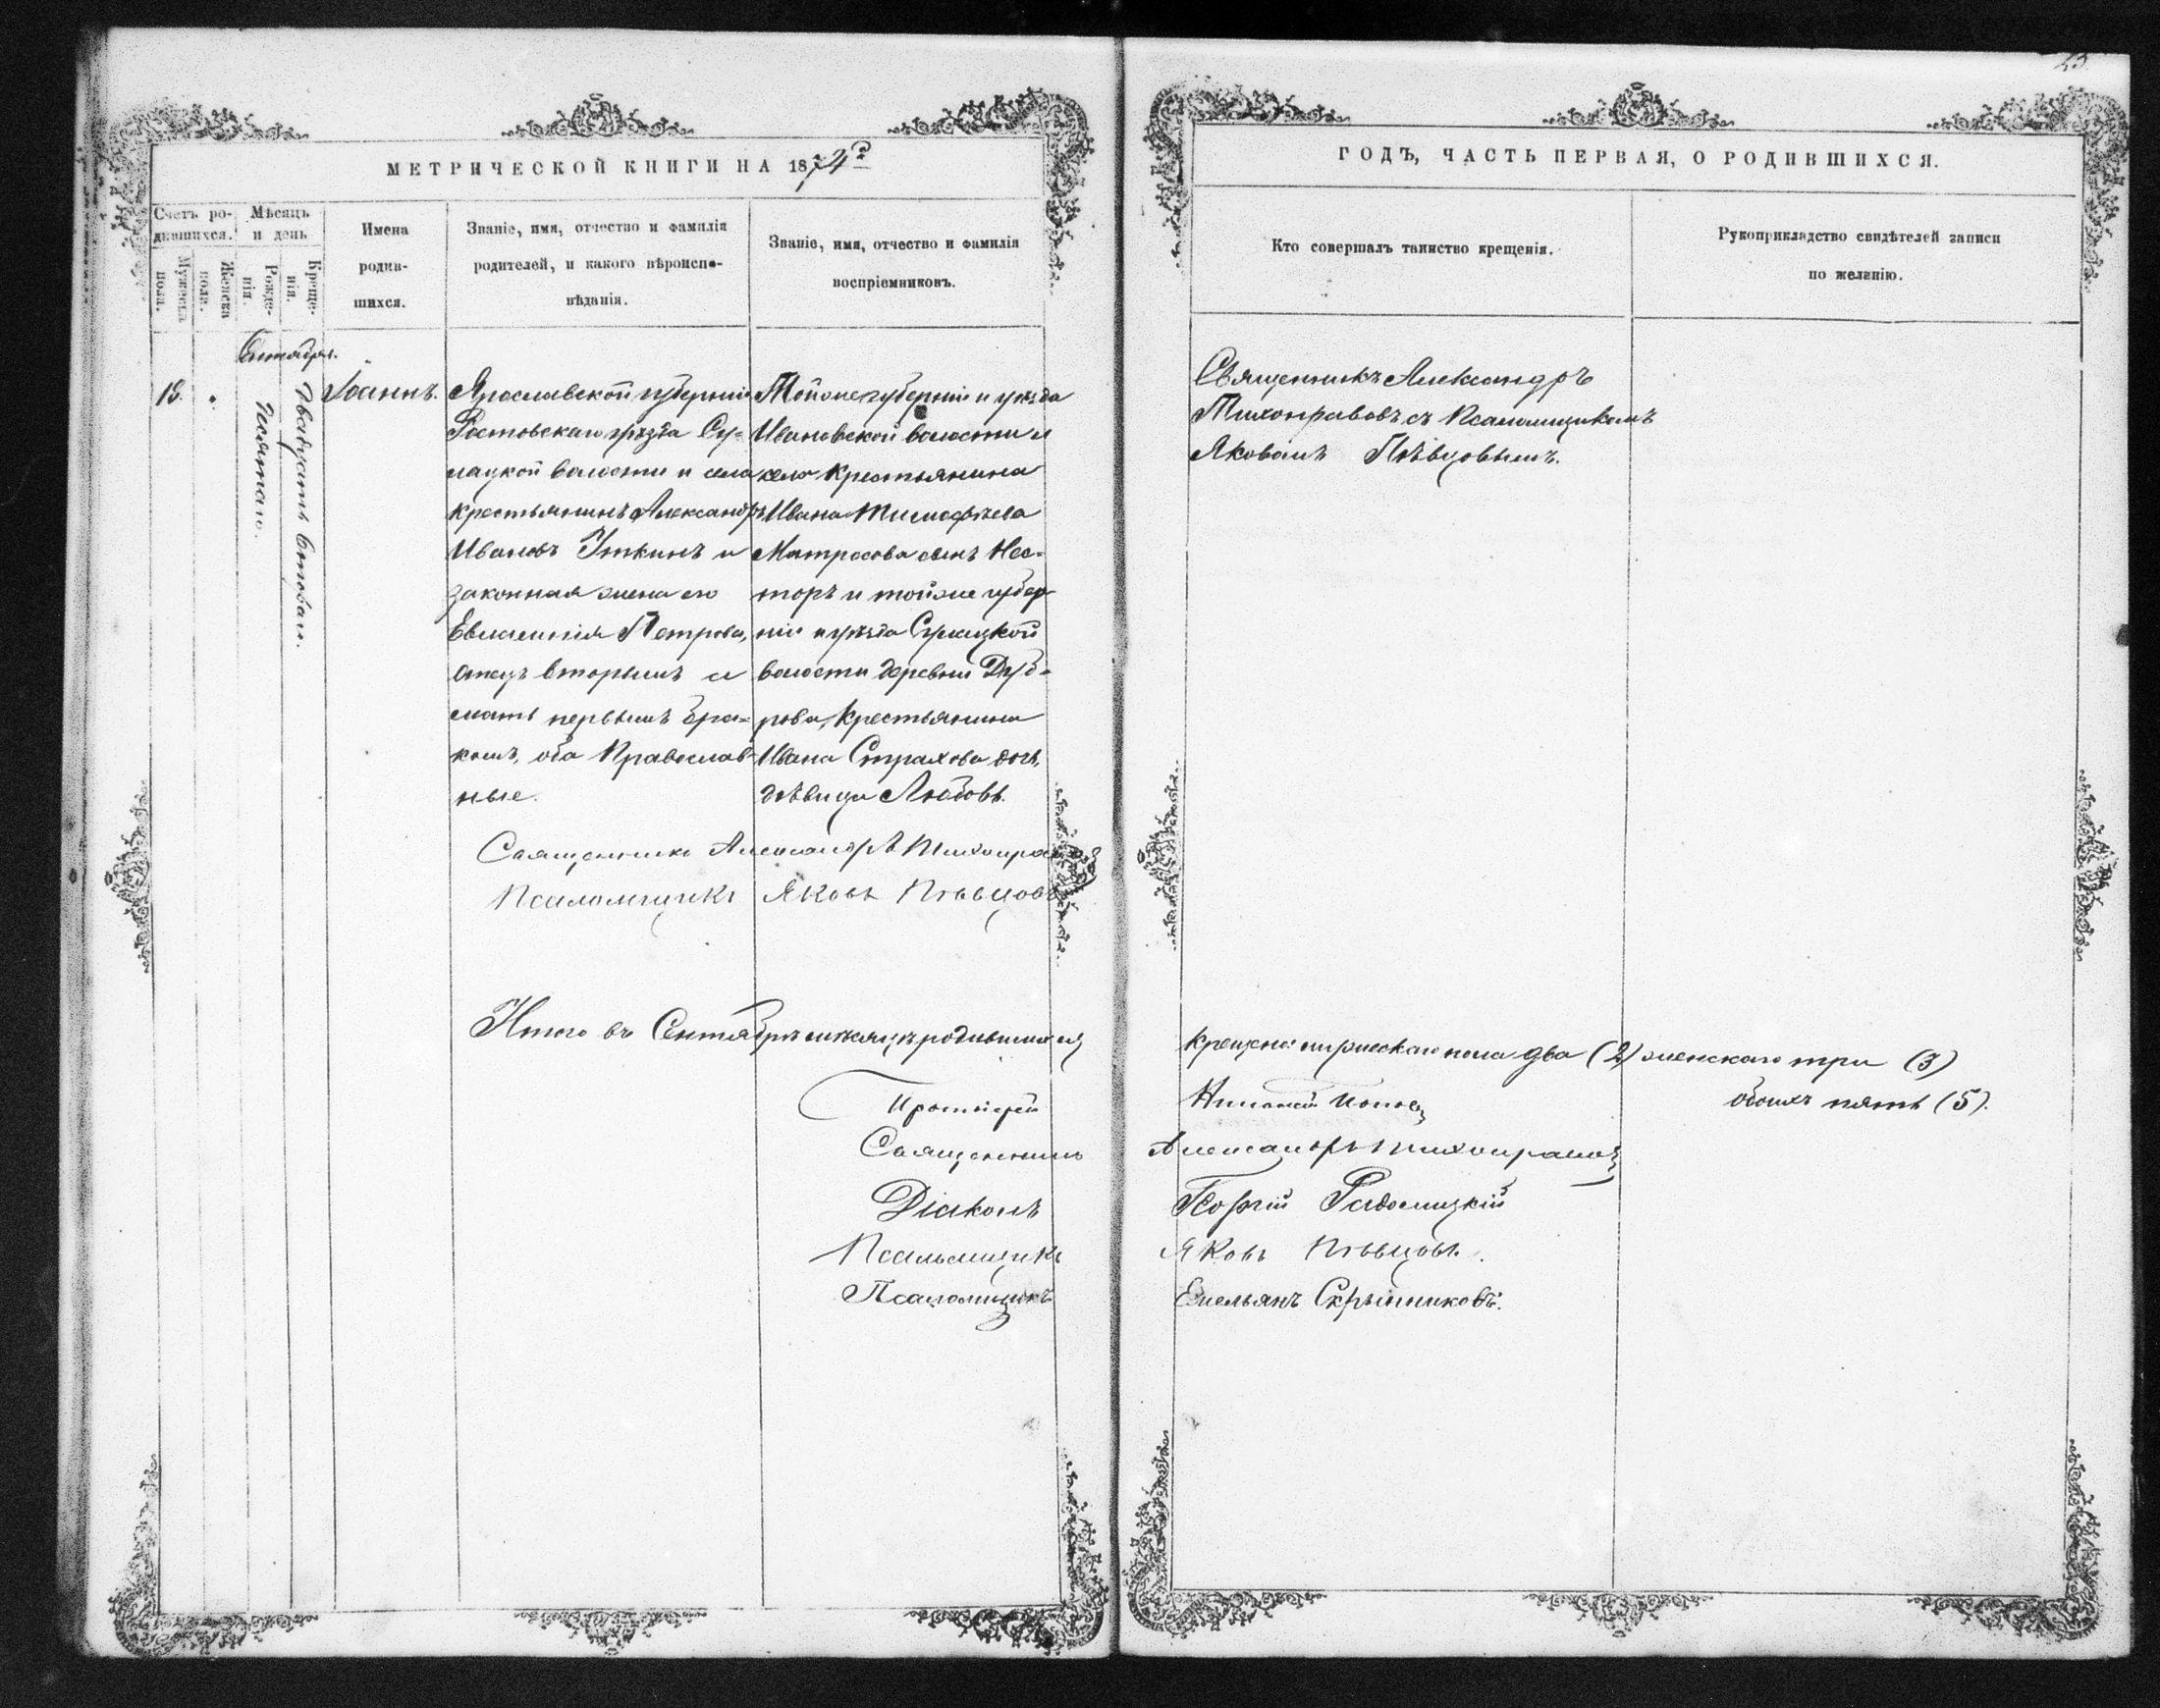 МЕТРИЧЕСКОЙ КНИГИ НА 1874
Счетъ ро-
дившихся.
Мѣсяцъ
и день
Мужеска
пола.
Женска
пола.
Рожде-
нія.
Креще-
нія.
Имена
родив-
шихся.
Званіе, имя, отчество и фамилія
родителей, и какого вѣроиспо-
вѣданія.
Званіе, имя, отчество и фамилія
воспріемниковъ.
18.
десятаго.
Двадцать
Іоаннъ.
Ярославской губерніи
Ростовскаго уѣзда Су-
лацкой волости и села
крестьянинъ Александръ
Ивановъ Уткинъ и
законная жена его
Евлампія Петрова,
отецъ вторымъ а
мать первымъ бра-
комъ, оба Православ-
ные.
Тойже губерніи и уѣзда
Ивановской волости и
села крестьянина
Ивана Тимофѣева
Матросова сынъ Нес-
торъ и тойже губер-
ніи и уѣзда Сулацкой
волости деревни Дуб-
рова, крестьянина
Ивана Страхова дочь
дѣвица Любовь.
Священникъ Александръ Тихонравовъ
Псаломщикъ Яковъ Пѣвцовъ
Итого въ Сентябрѣ мѣсяцѣ родившихся
Протоіерей
Священникъ
Діаконъ
Псаломщикъ
Псаломщикъ
23
ГОДЪ, ЧАСТЬ ПЕРВАЯ, О РОДИВШИХСЯ.
Кто совершалъ таинство крещенія.
Рукоприкладство свидѣтелей записи
по желанію.
Священникъ Александръ
Тихонравовъ съ Псаломщикомъ
Яковомъ Пѣвцовымъ.
крещено: мужескаго пола два (2) женскаго три (3)
обоихъ пять (5).
Поповъ
Александръ Тихонравовъ
Георгій
Яковъ Пѣвцовъ.
Емельянъ